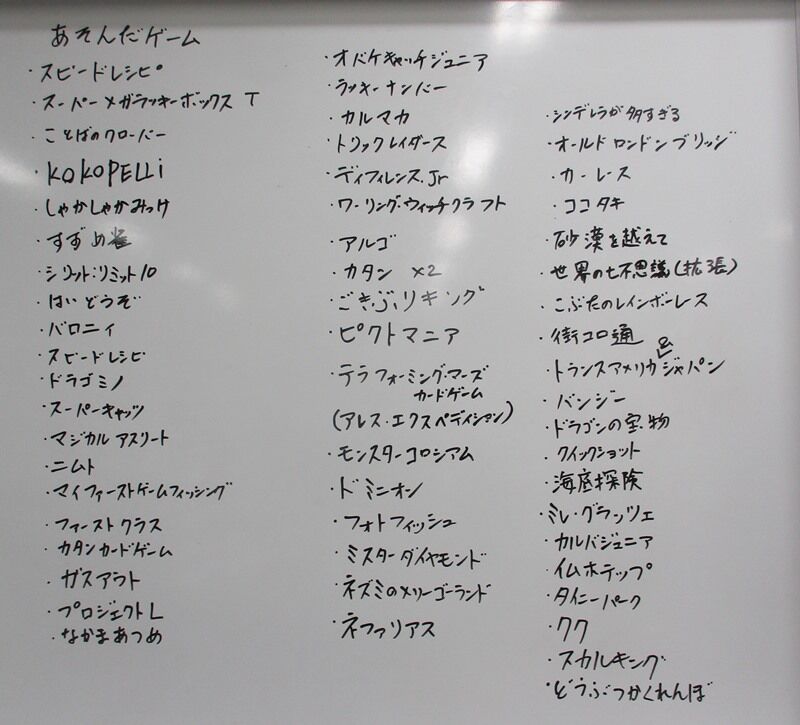 あそんだゲーム
・スピードレシピ
・スーパーメガラッキーボックス T
・ことばのクローバー
・KOKOPELLi
・しゃかしゃかみっけ
・すずめ雀
・シリット:リミット10
・はいどうぞ
・バロニィ
・スピードレシピ
・ドラゴミノ
・スーパーキャッツ
・マジカルアスリート
・ニムト
・マイファーストゲームフィッシング
・ファーストクラス
・カタンカードゲーム
・ガスアウト
・プロジェクトL
・なかまあつめ
・オバケキャッチジュニア
・ラッキーナンバー
・カルマカ
・トリックレイダース
・ディフィレンス.Jr
・ワーリング・ウィッチクラフト
・アルゴ
・カタン ×2
・ごきぶりキング
・ピクトマニア
・テラフォーミング・マーズ
カードゲーム
(アレス・エクスペディション)
・モンスターコロシアム
・ドミニオン
・フォトフィッシュ
・ミスターダイヤモンド
・ネズミのメリーゴーランド
・ネファリアス
・シンデレラが多すぎる
・オールドロンドンブリッジ
・カーレース
・ココタキ
・砂漠を越えて
・世界の七不思議(拡張)
・こぶたのレインボーレス
・街コロ通
・トランスアメリカ&ジャパン
・バンジー
・ドラゴンの宝物
・クイックショット
・海底探険
・ミレ・グラッツェ
・カルバジュニア
・イムホテップ
・タイニーパーク
・クク
・スカルキング
・どうぶつかくれんぼ